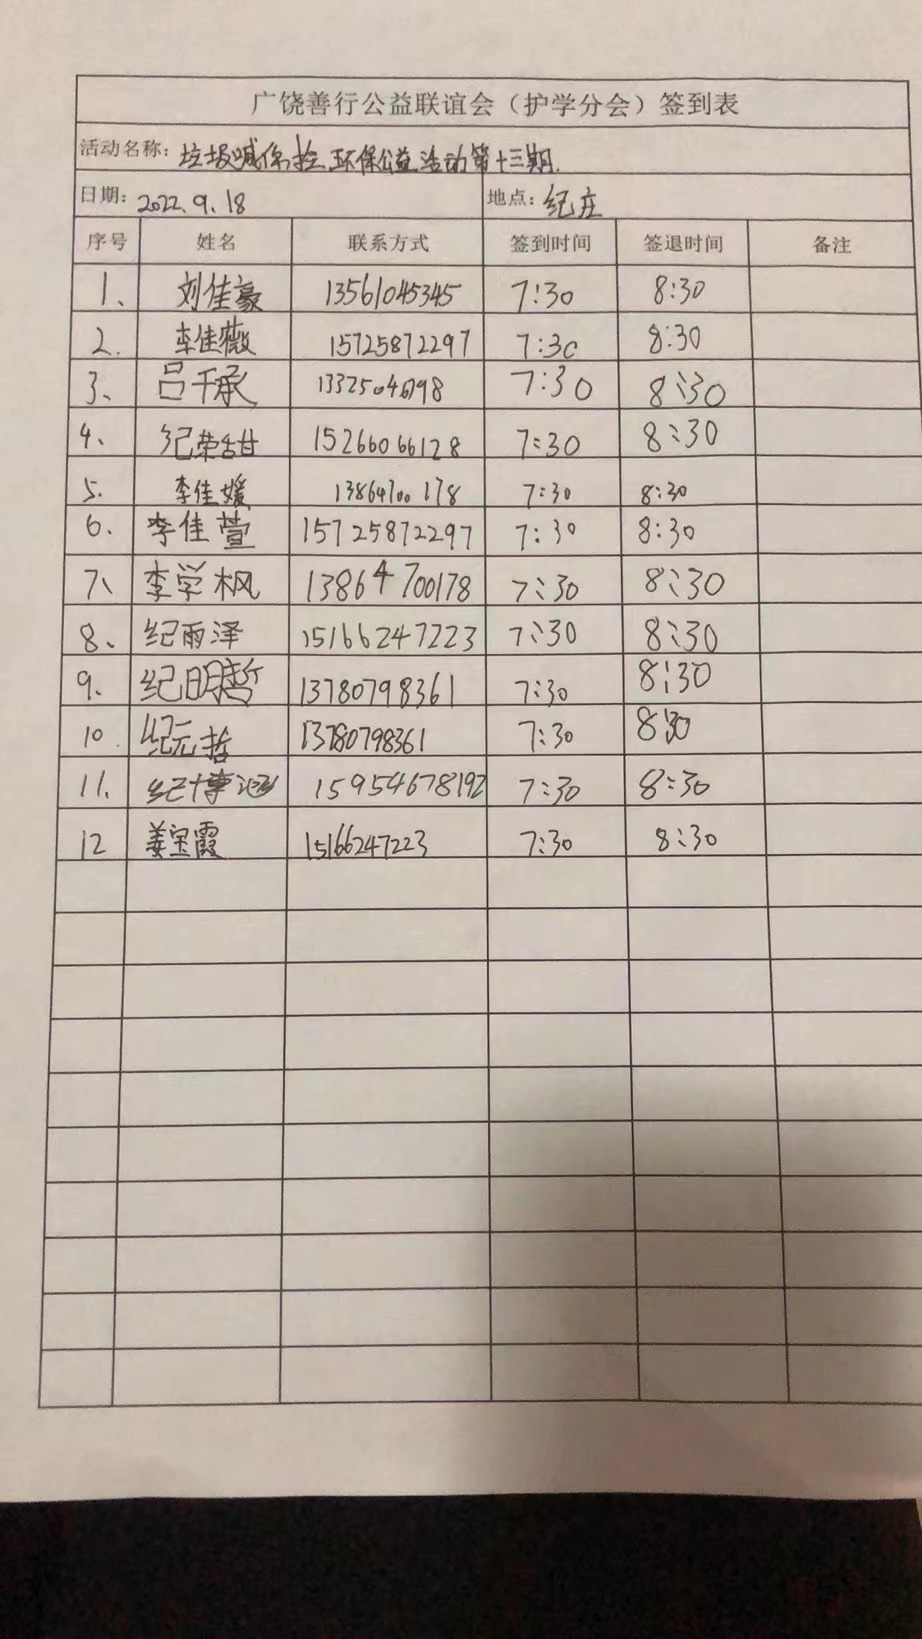 广饶善行公益联谊会（护学分会）签到表
活动名称：垃圾喊你捡 环保公益活动第十三期.
日期：2022.9.18 地点：纪庄
序号 姓名 联系方式 签到时间 签退时间 备注
1、 刘佳豪 13561045345 7:30 8:30
2. 李佳薇 15725872297 7:30 8:30
3、 吕千承 7:30 8:30
4、 纪荣甜 15266066128 7:30 8:30
5. 李佳媛 13864700178 7:30 8:30
6、 李佳萱 15725872297 7:30 8:30
7、 李学枫 13864700178 7:30 8:30
8、 纪雨泽 15166247223 7:30 8:30
9、 纪明哲 13780798361 7:30 8:30
10. 纪元哲 13780798361 7:30 8:30
11. 纪博 15954678192 7:30 8:30
12 姜宝霞 15166247223 7:30 8:30